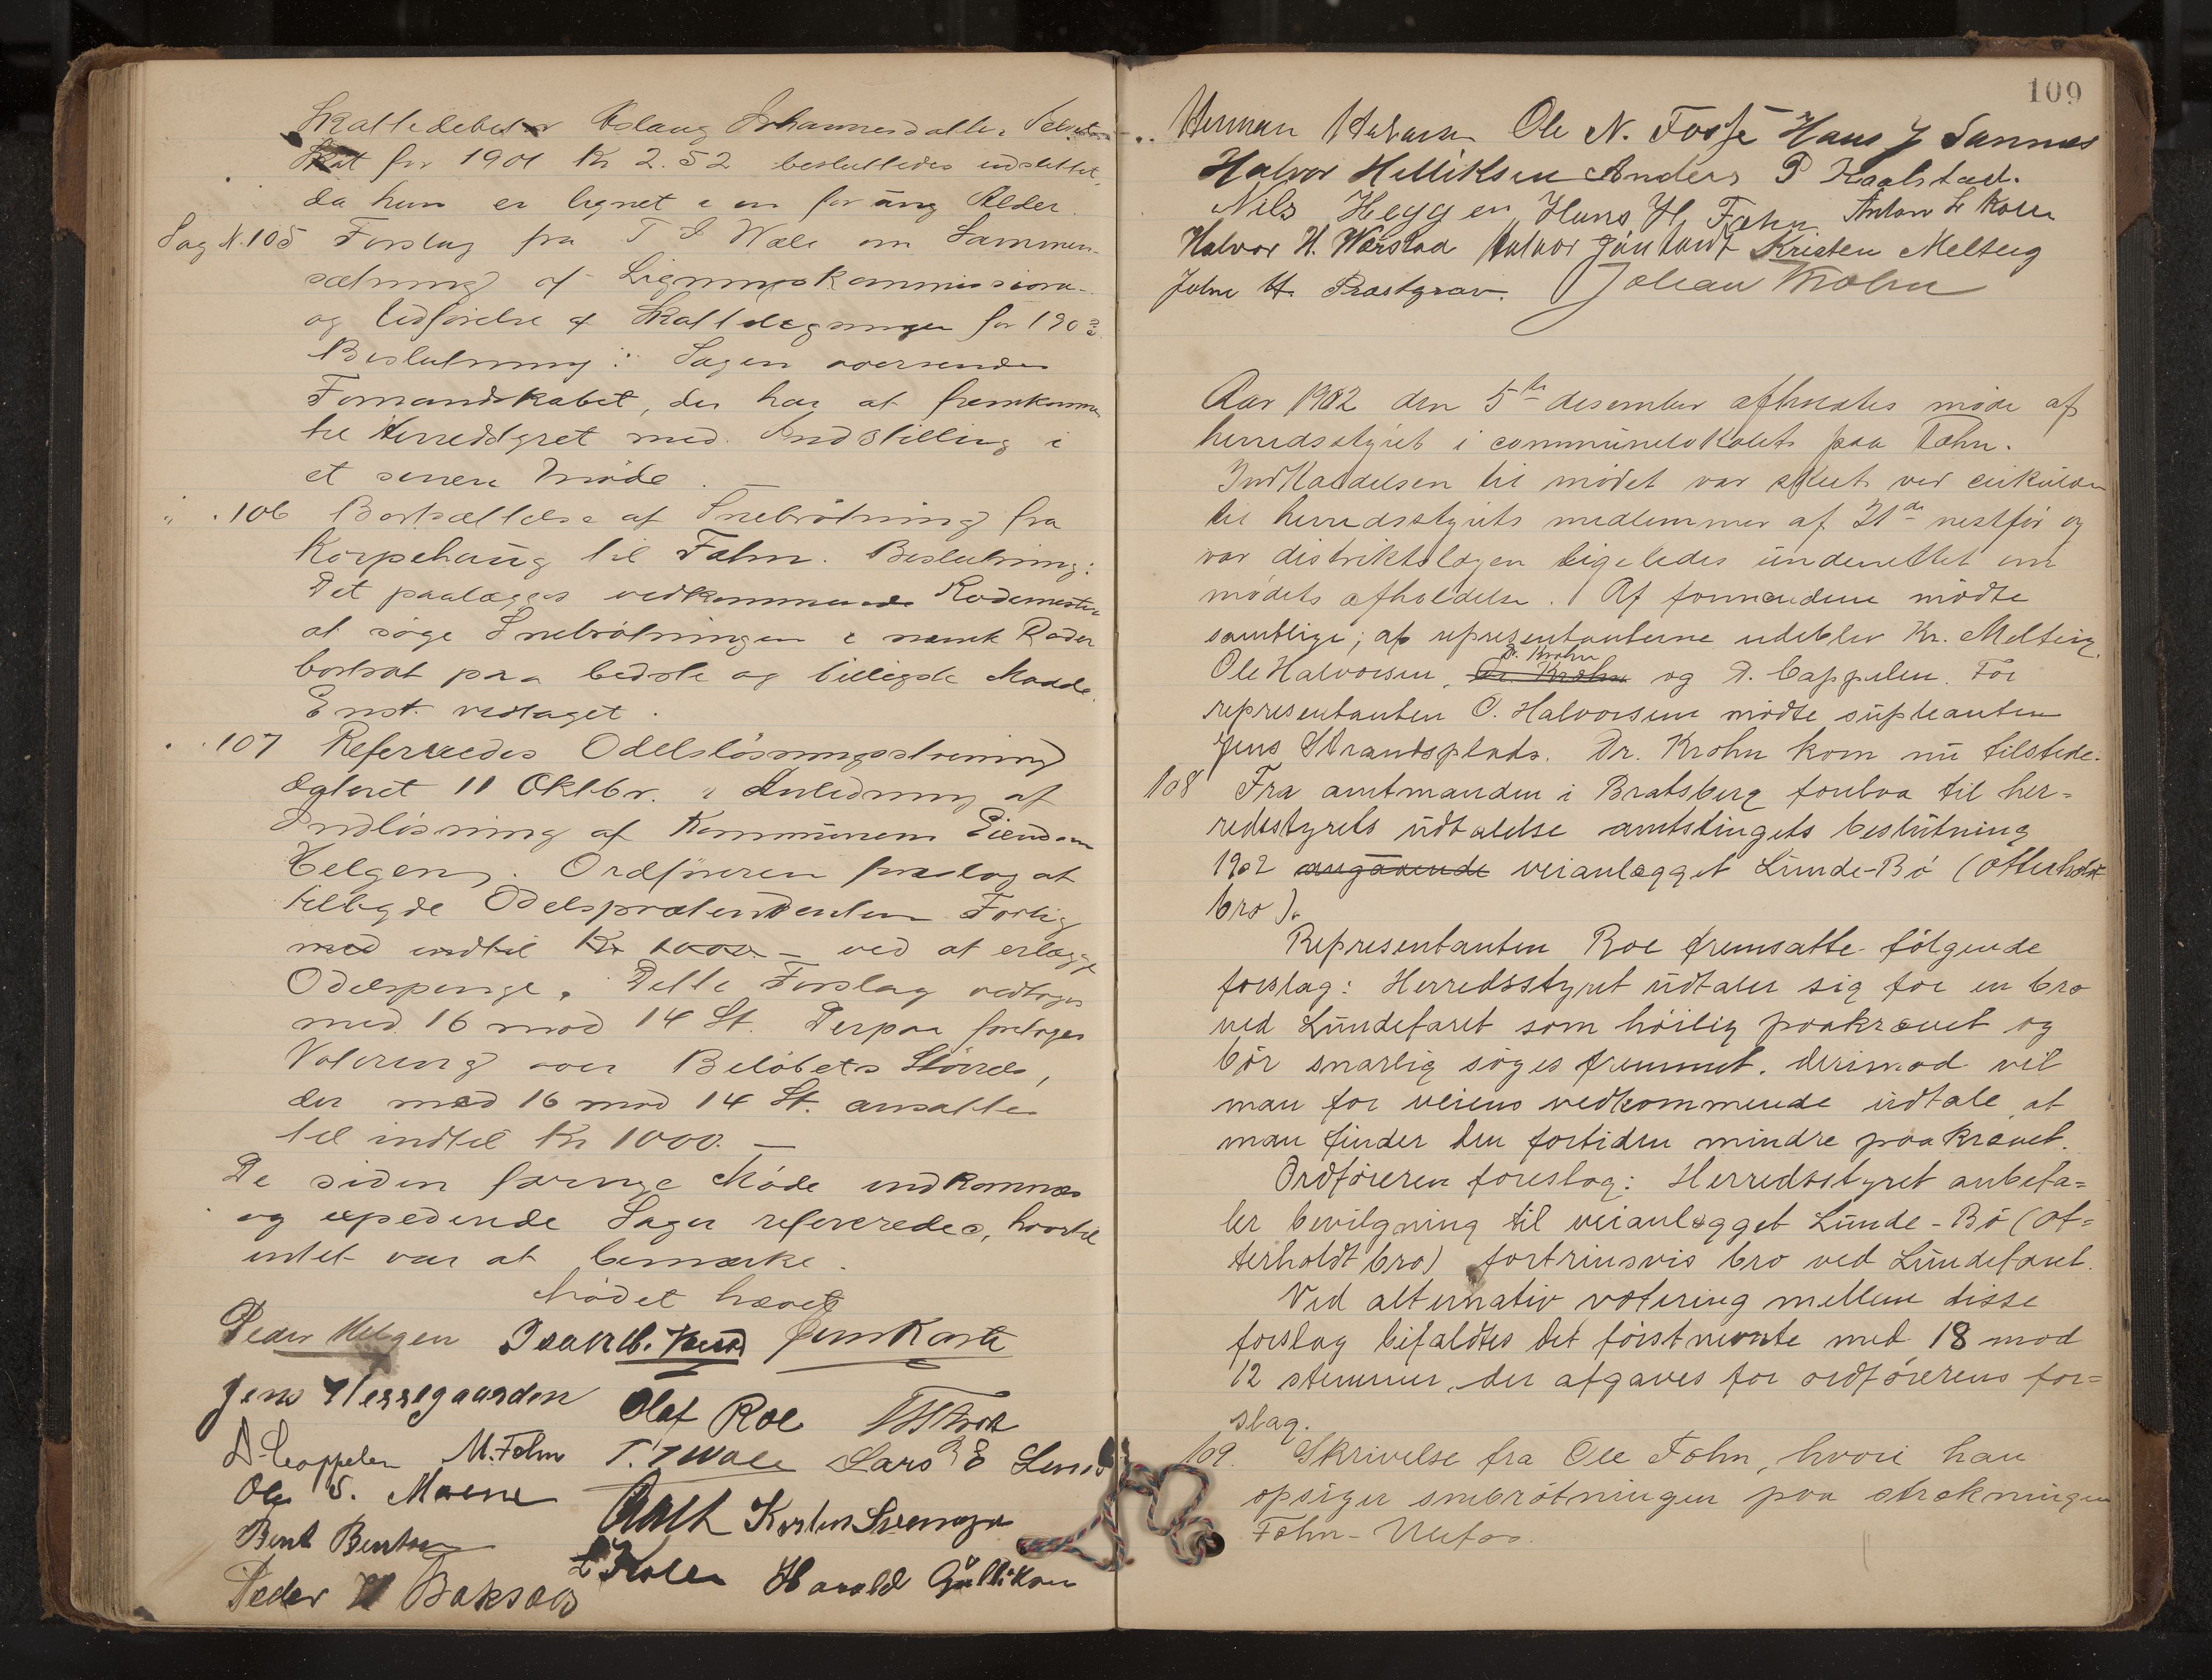 Skattedebet Aslaug Johannesdatter
Skat for 1901 Kr 2.52 besluttedes udslettet,
da hun er lignet i en for ung Alder.
Sag N. 105 Forslag fra T I Wale om Sammen-
sætning af Ligningskommissionen
og Udførelse af Skatteligningen for 1903.
Beslutning: Sagen oversendes
Formandskabet, der har at fremkomme
til Herredstyret med Indstilling i
et senere Møde.
" . 106 Bortsættelse af Snebrøtning fra
Korpehaug til Fahn. Beslutning:
Det paalægges vedkommende Rodemestre
at søge Snebrøtningen i nævnte Roder
bortsat paa bedste og billigste Maade.
Enst. vedtaget.
" . 107 Refereredes Odelsløsningsstevning
dateret 11 Oktbr. i Anledning af
Indløsning af Kommunens Eiendom
Helgen. Ordføreren foreslog at
tilbyde Odelsprætendenten Forlig
med indtil Kr 1000.- ved at erlægge
Odelspenge. Dette Forslag vedtoges
med 16 mod 14 St. Derpaa foretoges
Votering over Beløbets Størrelse,
der med 16 mod 14 St. ansattes
til indtil Kr 1000.-
De siden forrige Møde indkomne
og expederede Sager refereredes, hvortil
intet var at bemærke.
Mødet hævet
Peder Helgen Isak
Jens Hessegaarden Olaf Roe
D. Cappelen M. Fahn T. I Wale Lars E Lund
Ole S. Moene
Bent Bentsen Karsten
Peder H Baksaas Kolen Harald Gulliksen
109
Herman Halvorsen Ole N. Fosse Hans J Sannes
Halvor Helliksen Anders P Kaalstad.
Nils Heggen Hans H. Fahn Anton L Kolen
Halvor H. Wærstad Halvor Kristen Melteig
John H. Præstgrav. Johan Krohn
Aar 1902 den 5te desember afholdtes møde af
herredsstyret i communelokalet paa Fahn.
Indkaldelsen til mødet var skeet ved cirkulære
til herredsstyrets medlemmer af 21de nestfør og
var distriktslægen ligeledes underrettet om
mødets afholdelse. Af formændene mødte
samtlige; af representanterne udeblev Kr. Melteig,
Ole Halvorsen, Dr. Krohn og D. Cappelen. For
representanten O. Halvorsen mødte supleanten
Jens Strandsplads. Dr. Krohn kom nu tilstede.
108 Fra amtmanden i Bratsberg forelaa til her=
redsstyrets udtalelse amtstingets beslutning
1902 angaaende veianlægget Lunde-Bø (Otterholdt
bro).
Representanten Roe fremsatte følgende
forslag: Herredsstyret udtaler sig for en bro
ved Lundefaret som høilig paakrævet og
bør snarlig søges fremmet, derimod vil
man for veiens vedkommende udtale, at
man finder den fortiden mindre paakrævet.
Ordføreren foreslog: Herredsstyret anbefa=
ler bevilgning til veianlægget Lunde-Bø (Ot=
terholdt bro) fortrinsvis bro ved Lundefaret.
Ved alternativ votering mellem disse
forslag bifaldtes det førstnevnte med 18 mod
12 stemmer, der afgaves for ordførerens for=
slag.
109. Skrivelse fra Ole Fahn, hvori han
opsiger snebrøtningen paa strekningen
Fahn-Ulefos.